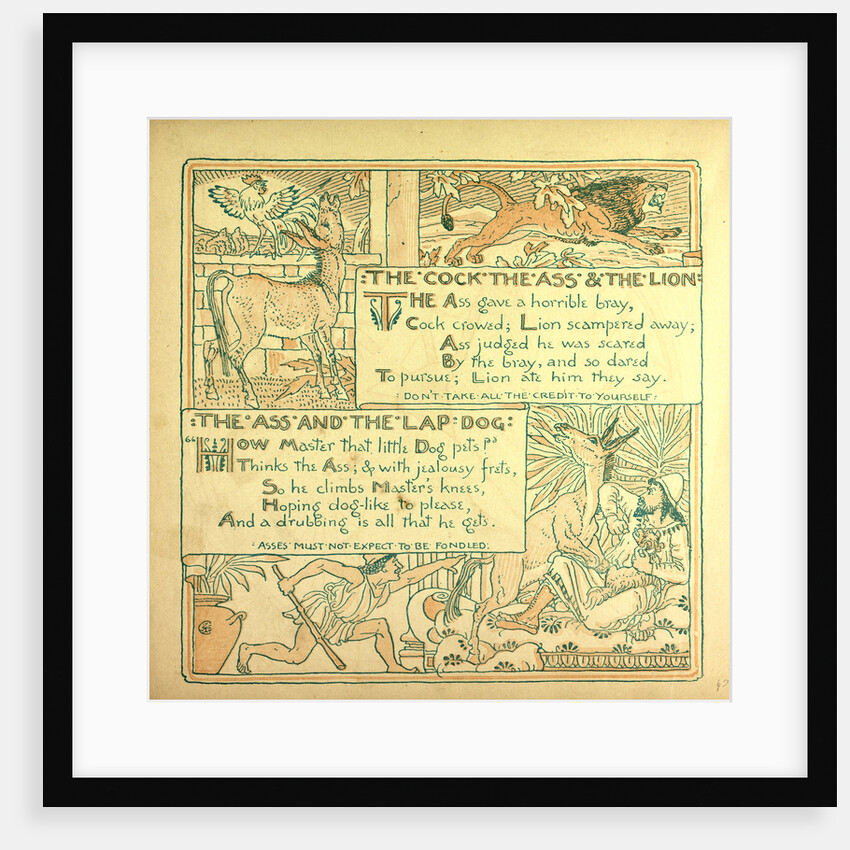 :THE·COCK·THE·ASS·&·THE·LION:
THE Ass gave a horrible bray,
Cock crowed; Lion scampered away;
Ass judged he was scared
By the bray, and so dared
To pursue; Lion ate him they say.
:DON'T·TAKE·ALL·THE·CREDIT·TO·YOURSELF:
:THE·ASS·AND·THE·LAP·DOG:
“HOW Master that little Dog pets!”
Thinks the Ass; & with jealousy frets,
So he climbs Master's knees,
Hoping dog-like to please,
And a drubbing is all that he gets.
:ASSES·MUST·NOT·EXPECT·TO·BE·FONDLED: